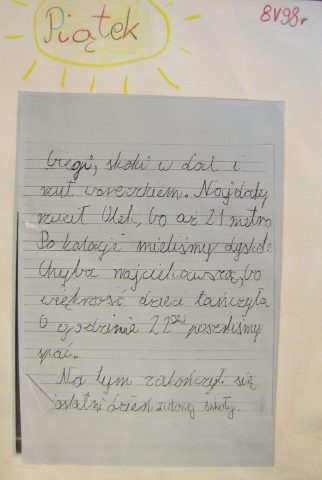 Piątek
8 V 98 r
biegi, skoki w dal i
rzut woreczkiem. Najdalej
rzucił Olek, bo aż 21 metrów
Po kolacji mieliśmy dyskotekę
Chyba najciekawszą, bo
większość dzieci tańczyła
O godzinie 22⁰⁰ poszliśmy
spać.
Na tym zakończył się
ostatni dzień zielonej szkoły.